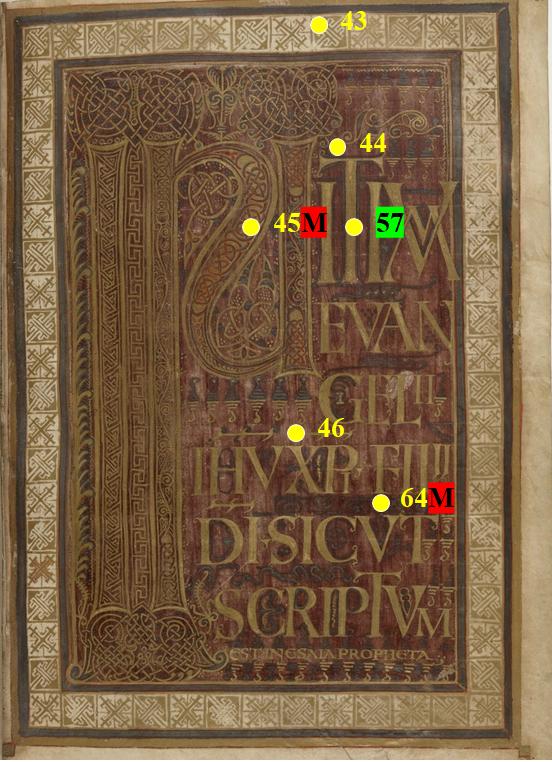 43
44
45M 57
INITIVM
EVAN
GELII
46
IHV XPI FILII
64M
DI·SICVT
SCRIPTVM
EST IN ESAIA PROPHETA